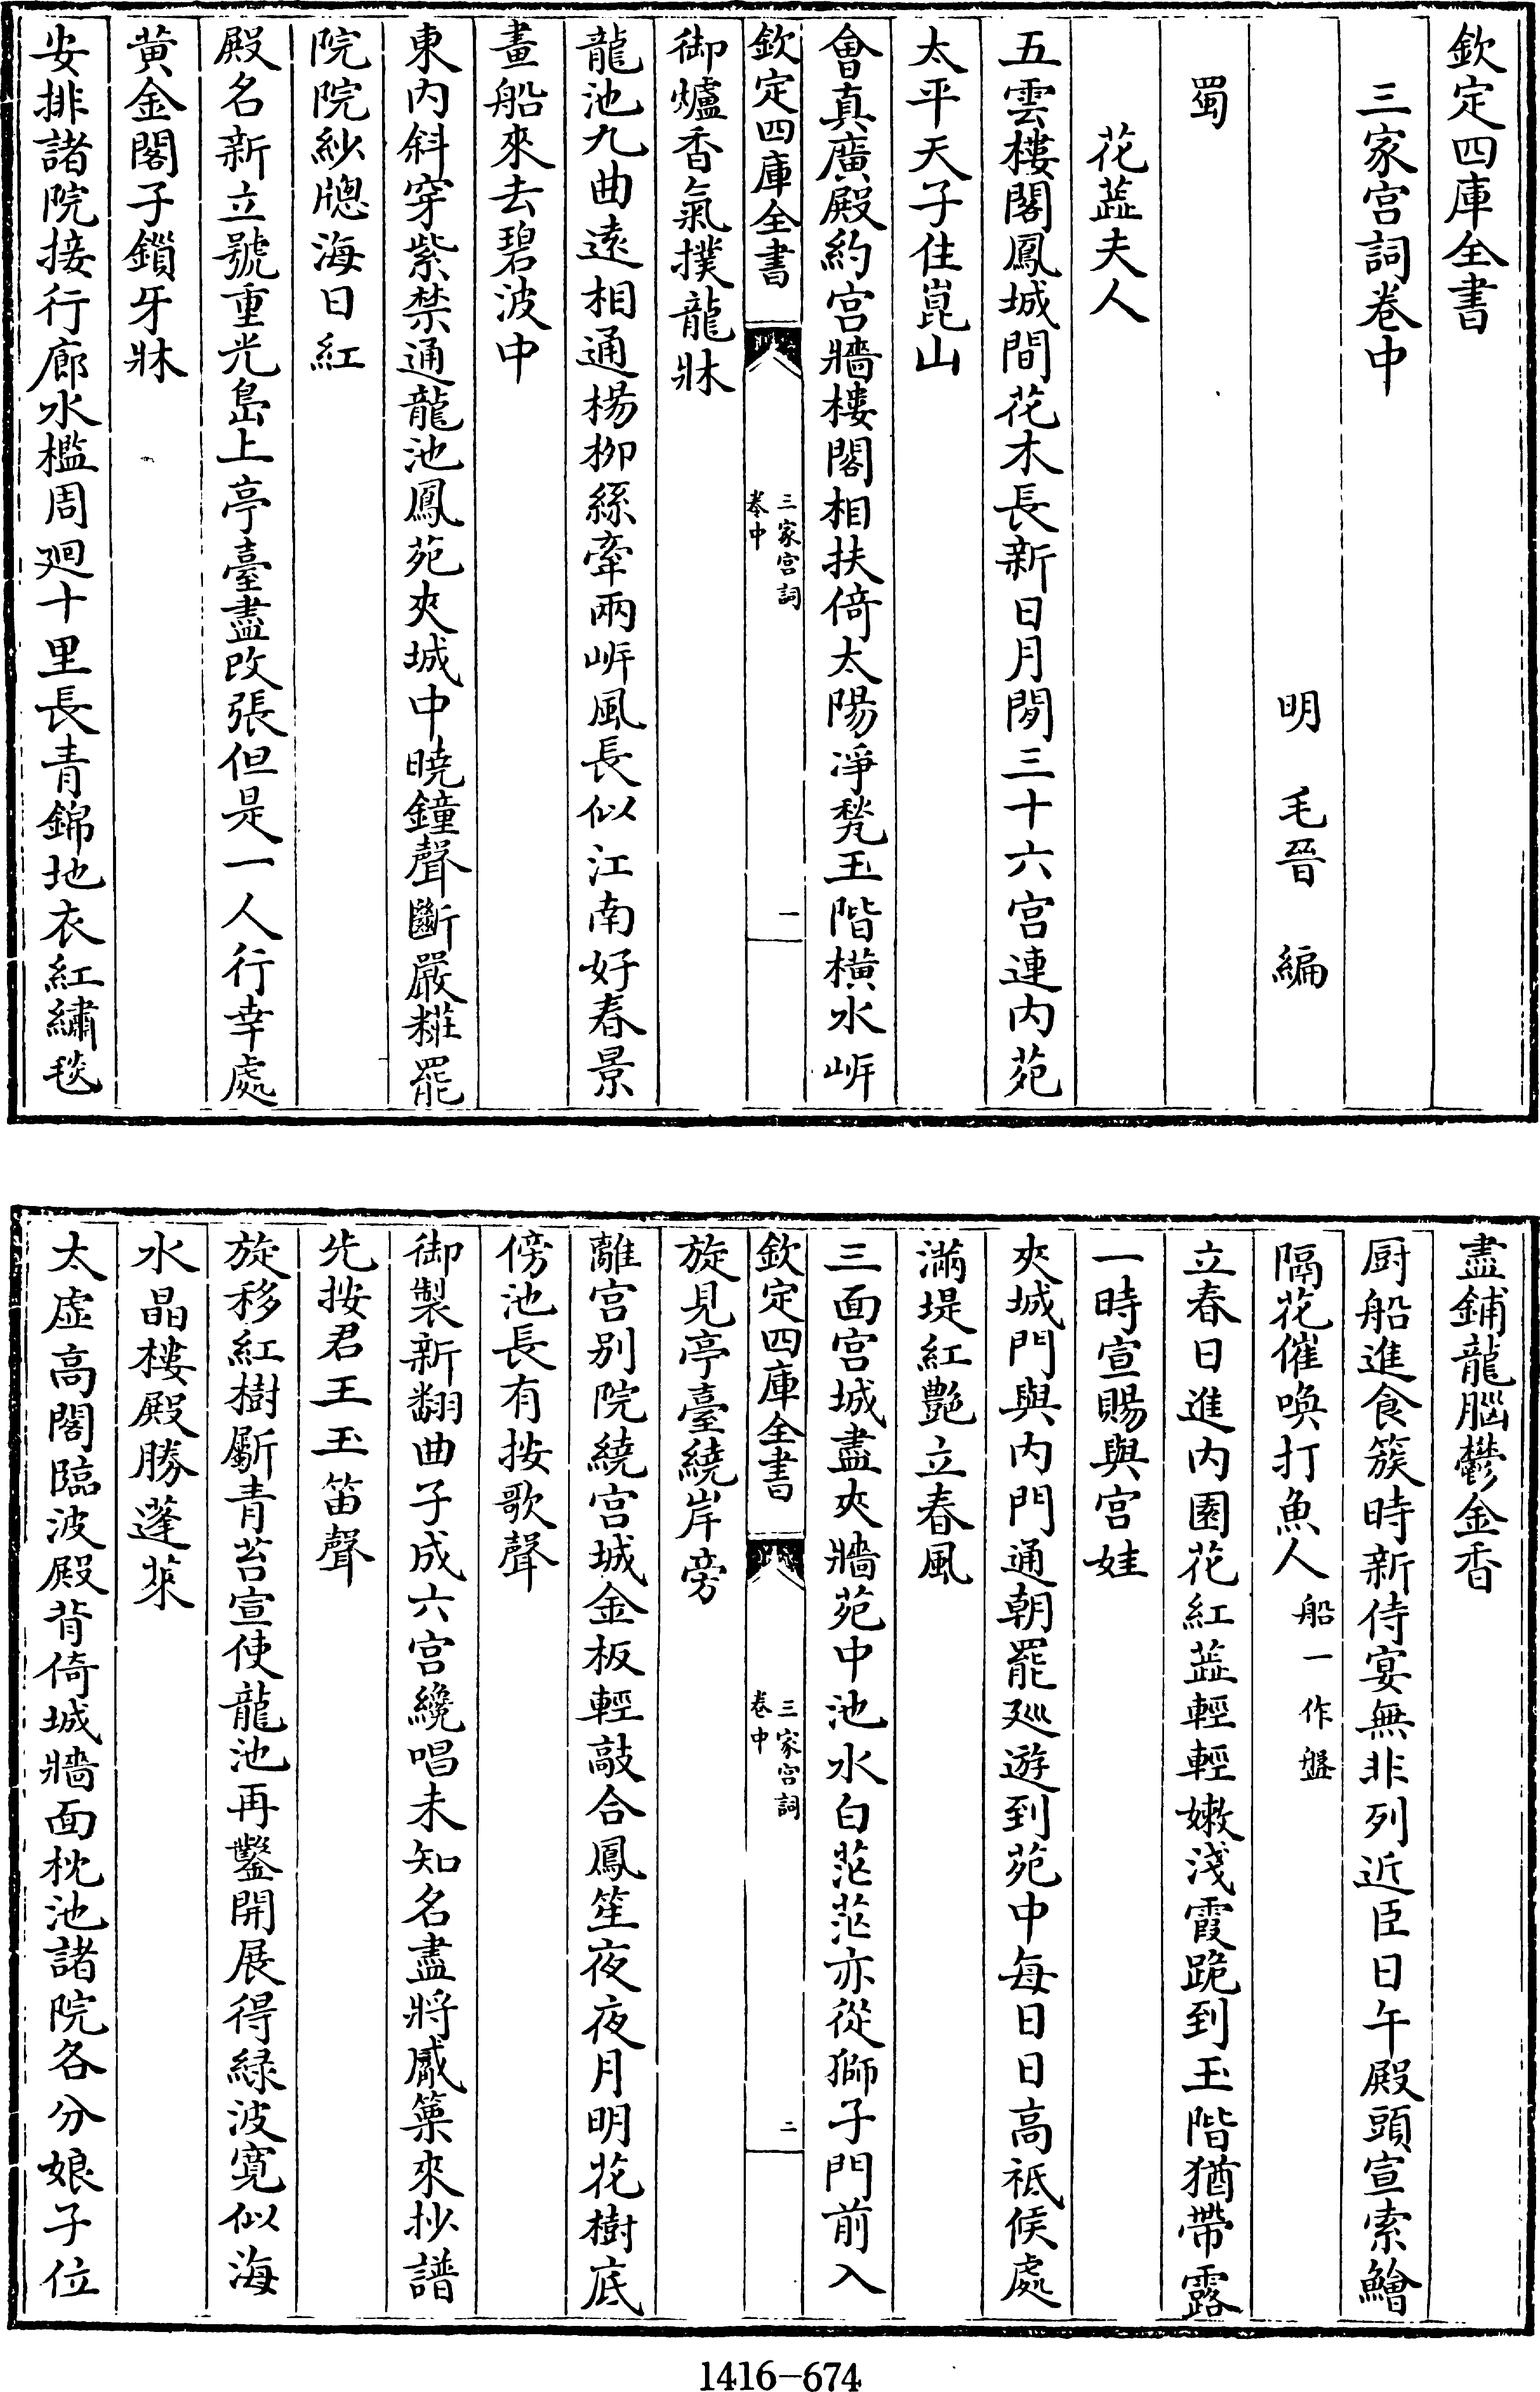 欽定四庫全書
三家宫詞卷中
明　毛晉　編
蜀
花蕊夫人
五雲樓閣鳳城間花木長新日月閒三十六宫連内苑
太平天子住崑山
會真廣殿約宫牆樓閣相扶倚太陽淨甃玉階横水岍
御爐香氣撲龍牀
龍池九曲遠相通楊柳絲牽兩岍風長似江南好春景
畫船來去碧波中
東内斜穿紫禁通龍池鳳苑夾城中曉鐘聲斷嚴糚罷
院院紗牎海日紅
殿名新立號重光島上亭臺盡改張但是一人行幸處
黄金閣子鎖牙牀
安排諸院接行廊水檻周廻十里長青錦地衣紅繡毯
欽定四庫全書
三家宫詞
卷中
一
盡鋪龍腦鬱金香
厨船進食簇時新侍宴無非列近臣日午殿頭宣索鱠
隔花催喚打魚人船一作盤
立春日進内園花紅蕊輕輕嫩淺霞跪到玉階猶帶露
一時宣賜與宫娃
夾城門與内門通朝罷廵遊到苑中每日日高祗候處
滿堤紅艷立春風
三面宫城盡夾牆苑中池水白茫茫亦從獅子門前入
旋見亭臺繞岸旁
離宫别院繞宫城金板輕敲合鳳笙夜夜月明花樹底
傍池長有按歌聲
御製新翻曲子成六宫纔唱未知名盡將觱篥來抄譜
先按君王玉笛聲
旋移紅樹斸青苔宣使龍池再鑿開展得緑波寛似海
水晶樓殿勝蓬萊
太虚高閣臨波殿背倚城牆面枕池諸院各分娘子位
欽定四庫全書
三家宫詞
卷中
二
1416-674